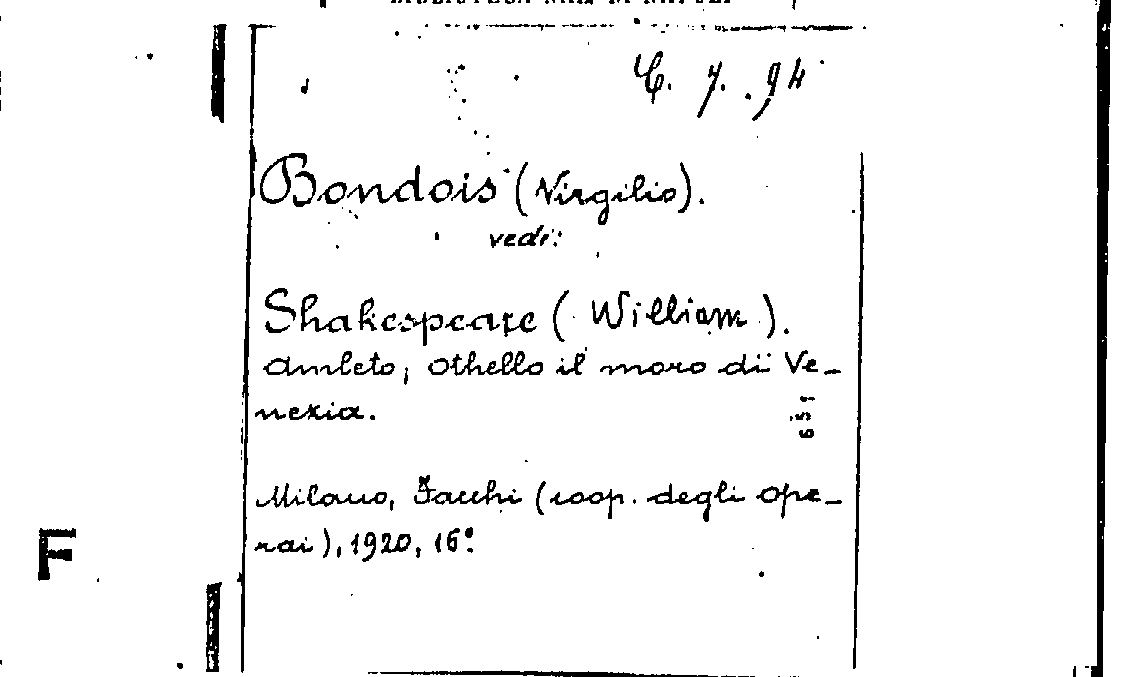 C. 7. 94
Bondois (Virgilio).
vedi:
Shakespeare (William).
Amleto; Othello il moro di Ve-
nezia.
651
Milano, Facchi (coop. degli ope-
rai), 1920, 16°.
F